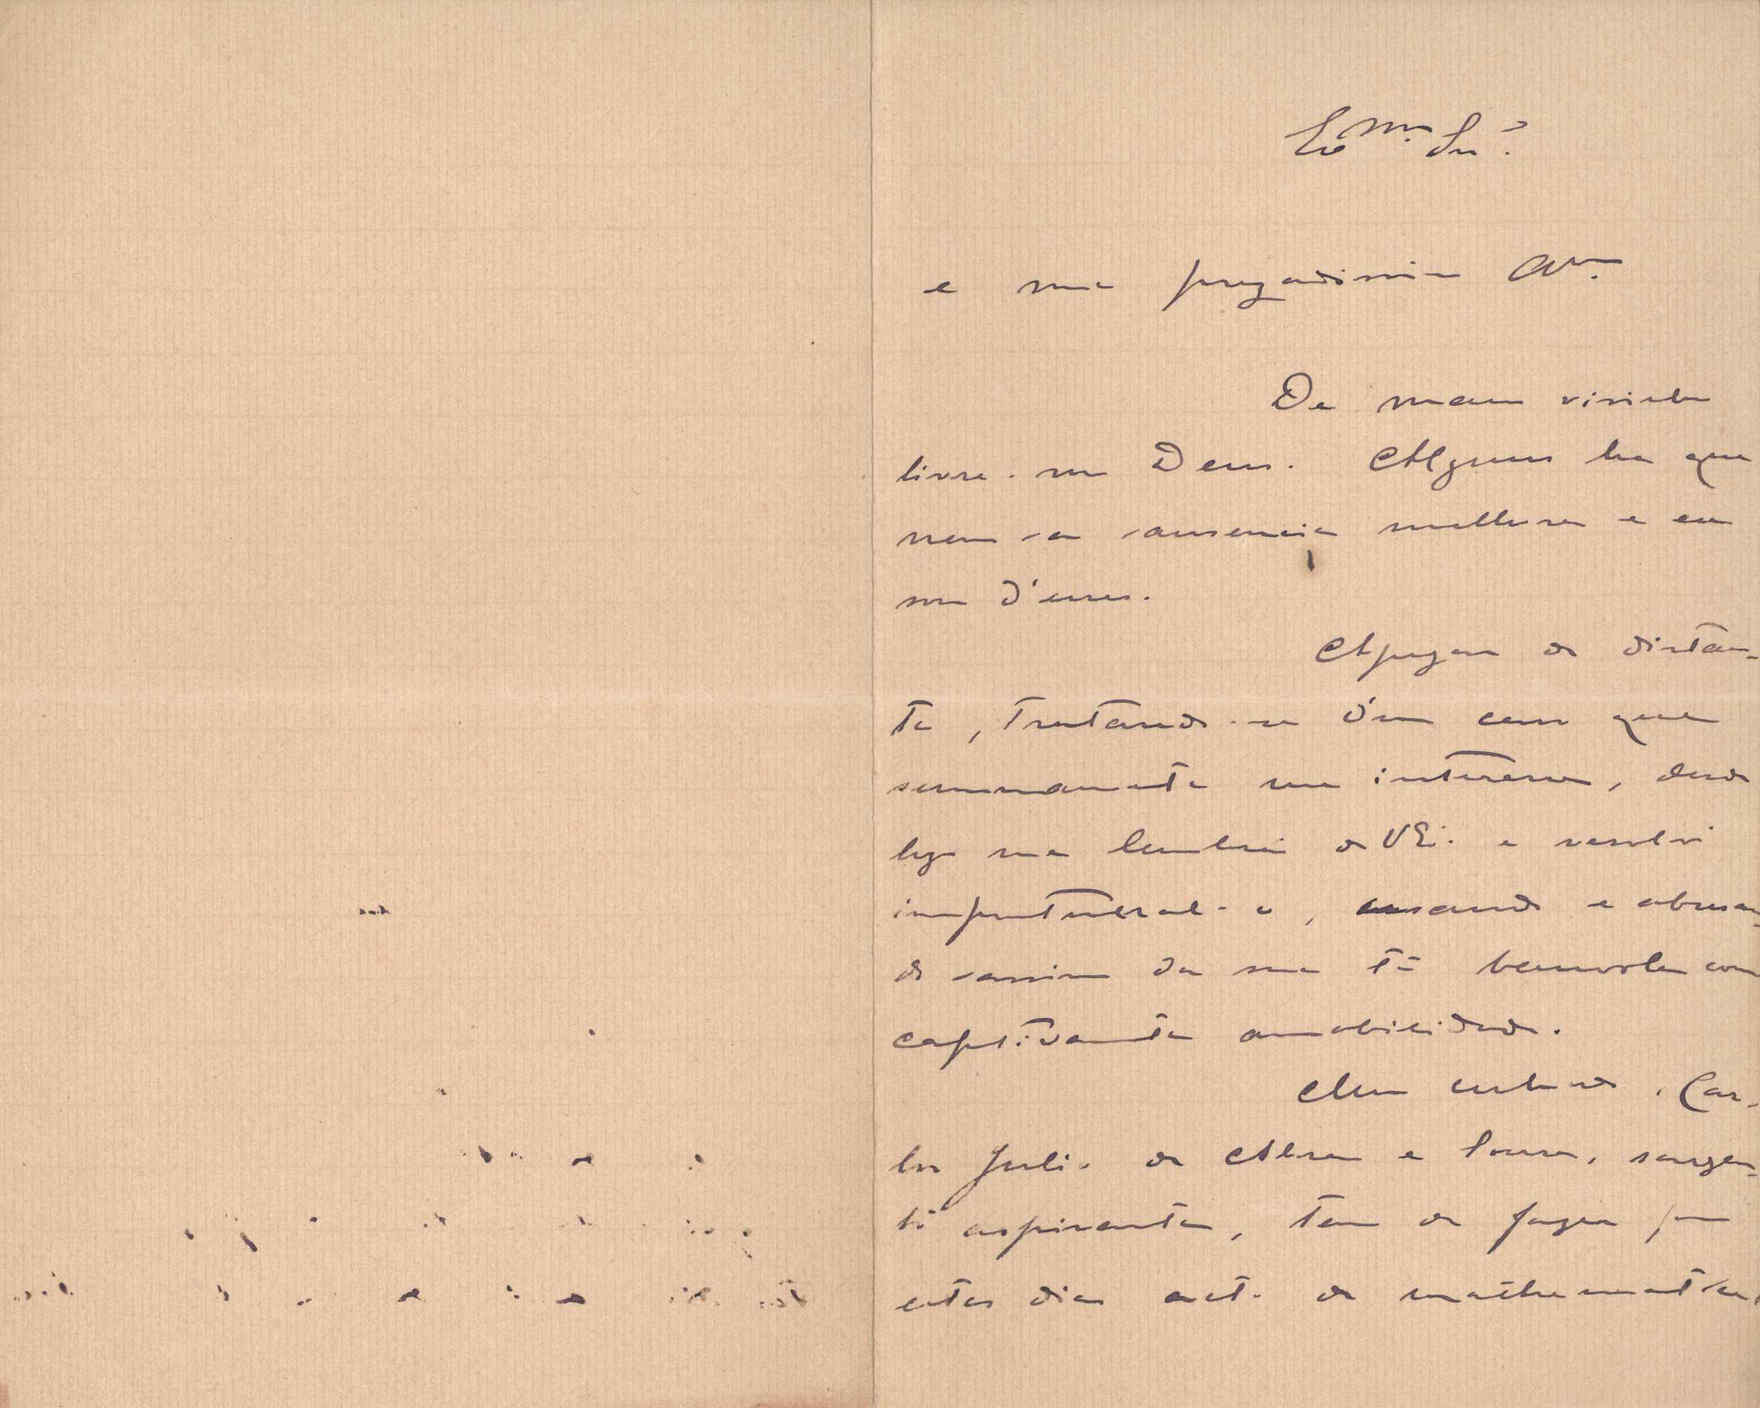 Ex.mo Snr.
e meu presadissimo Am.
De maus visinhos
livre-me Deus. Alguns ha que
nem na ausencia melhoram e eu
sou d'esses.
Apezar de distan-
te, tratando-se d'um caso que
summamente me interessa, desde
logo me lembrei de V Ex. e resolvi
importunal-o, usando e abusan-
do assim da sua tão benevola como
captivante amabilidade.
Meu cunhado, Car-
los Julio de Abreu e Sousa, sargen-
to aspirante, tem de fazer por
estes dias acto de mathematica,